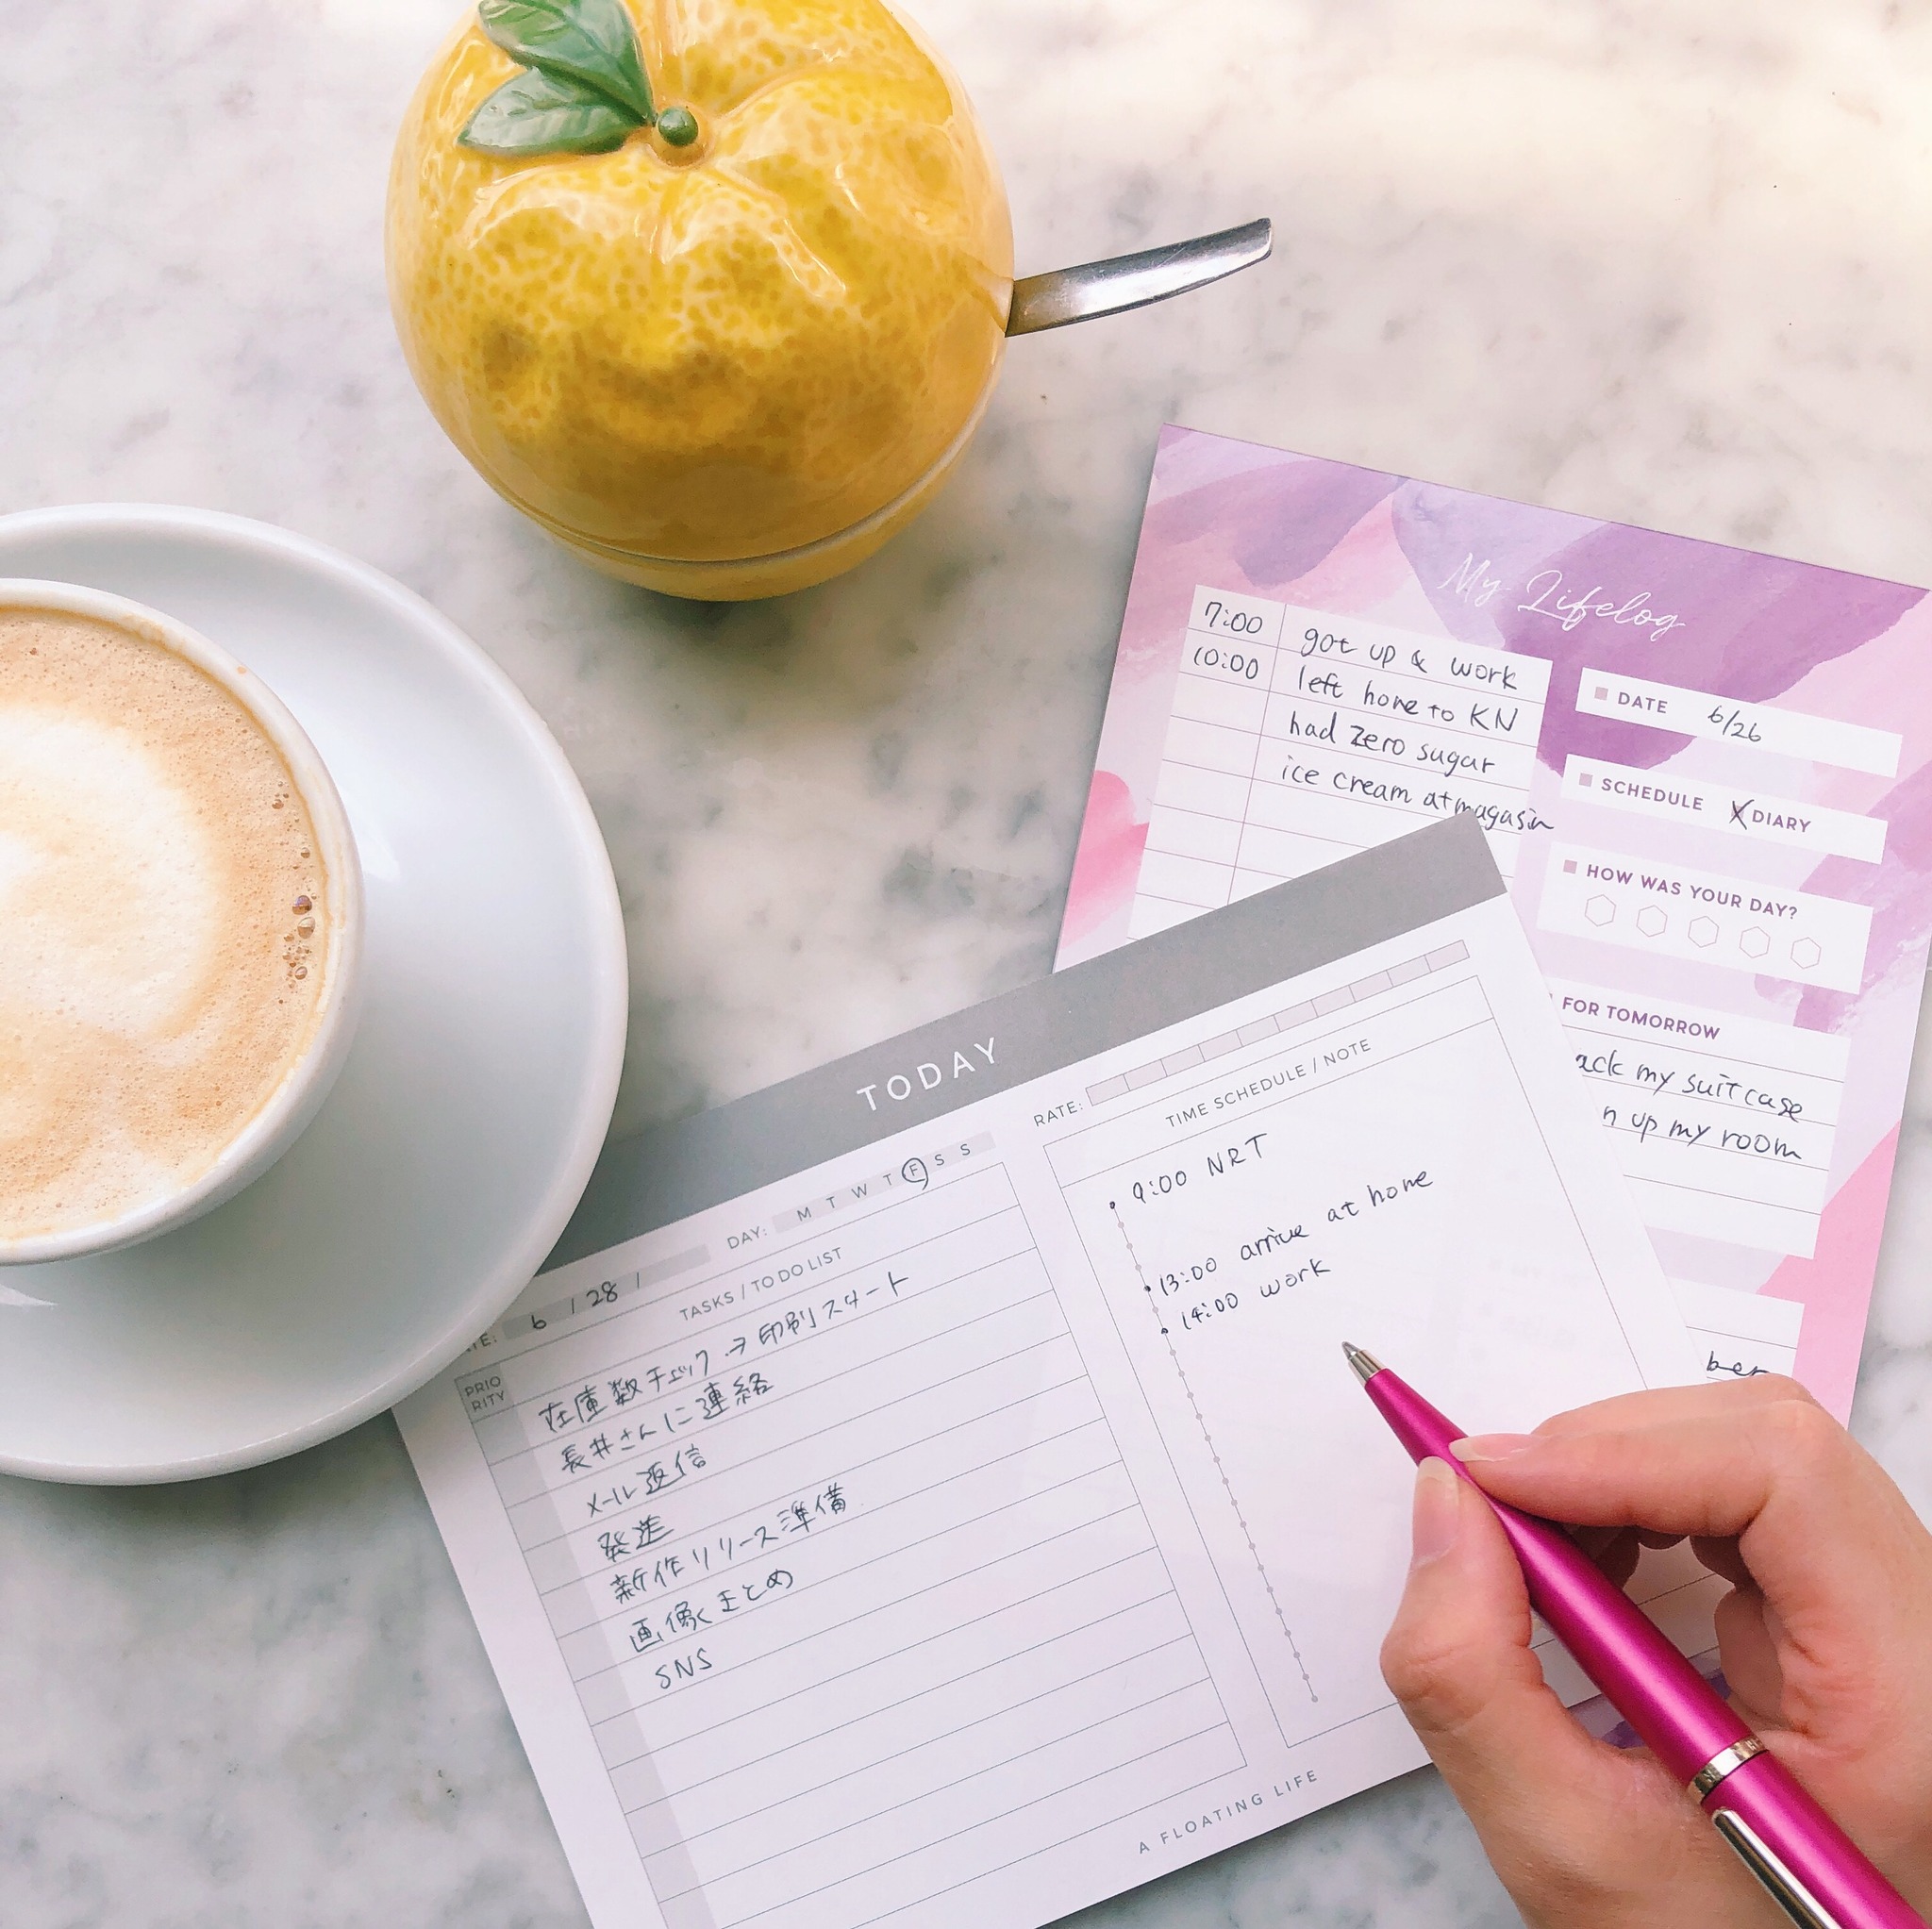 My Lifelog
7:00 got up & work
10:00 left home to KN
had zero sugar
ice cream at magasin
DATE 6/26
SCHEDULE X DIARY
HOW WAS YOUR DAY?
FOR TOMORROW
my suitcase
up my room
TODAY
6 / 28 /
DAY: M T W T F S S
RATE:
TASKS / TO DO LIST
PRIO
RITY
在庫数チェック → 印刷スタート
長井さんに連絡
メール返信
発送
新作リリース準備
画像まとめ
SNS
TIME SCHEDULE / NOTE
9:00 NRT
13:00 arrive at home
14:00 work
A FLOATING LIFE